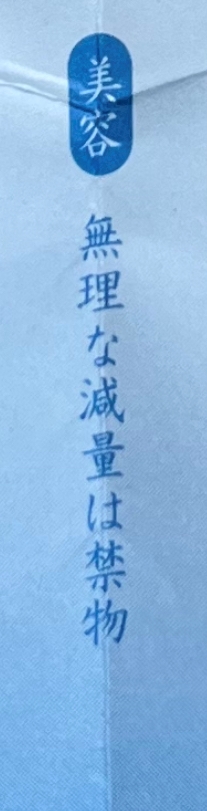 美容
無理な減量は禁物